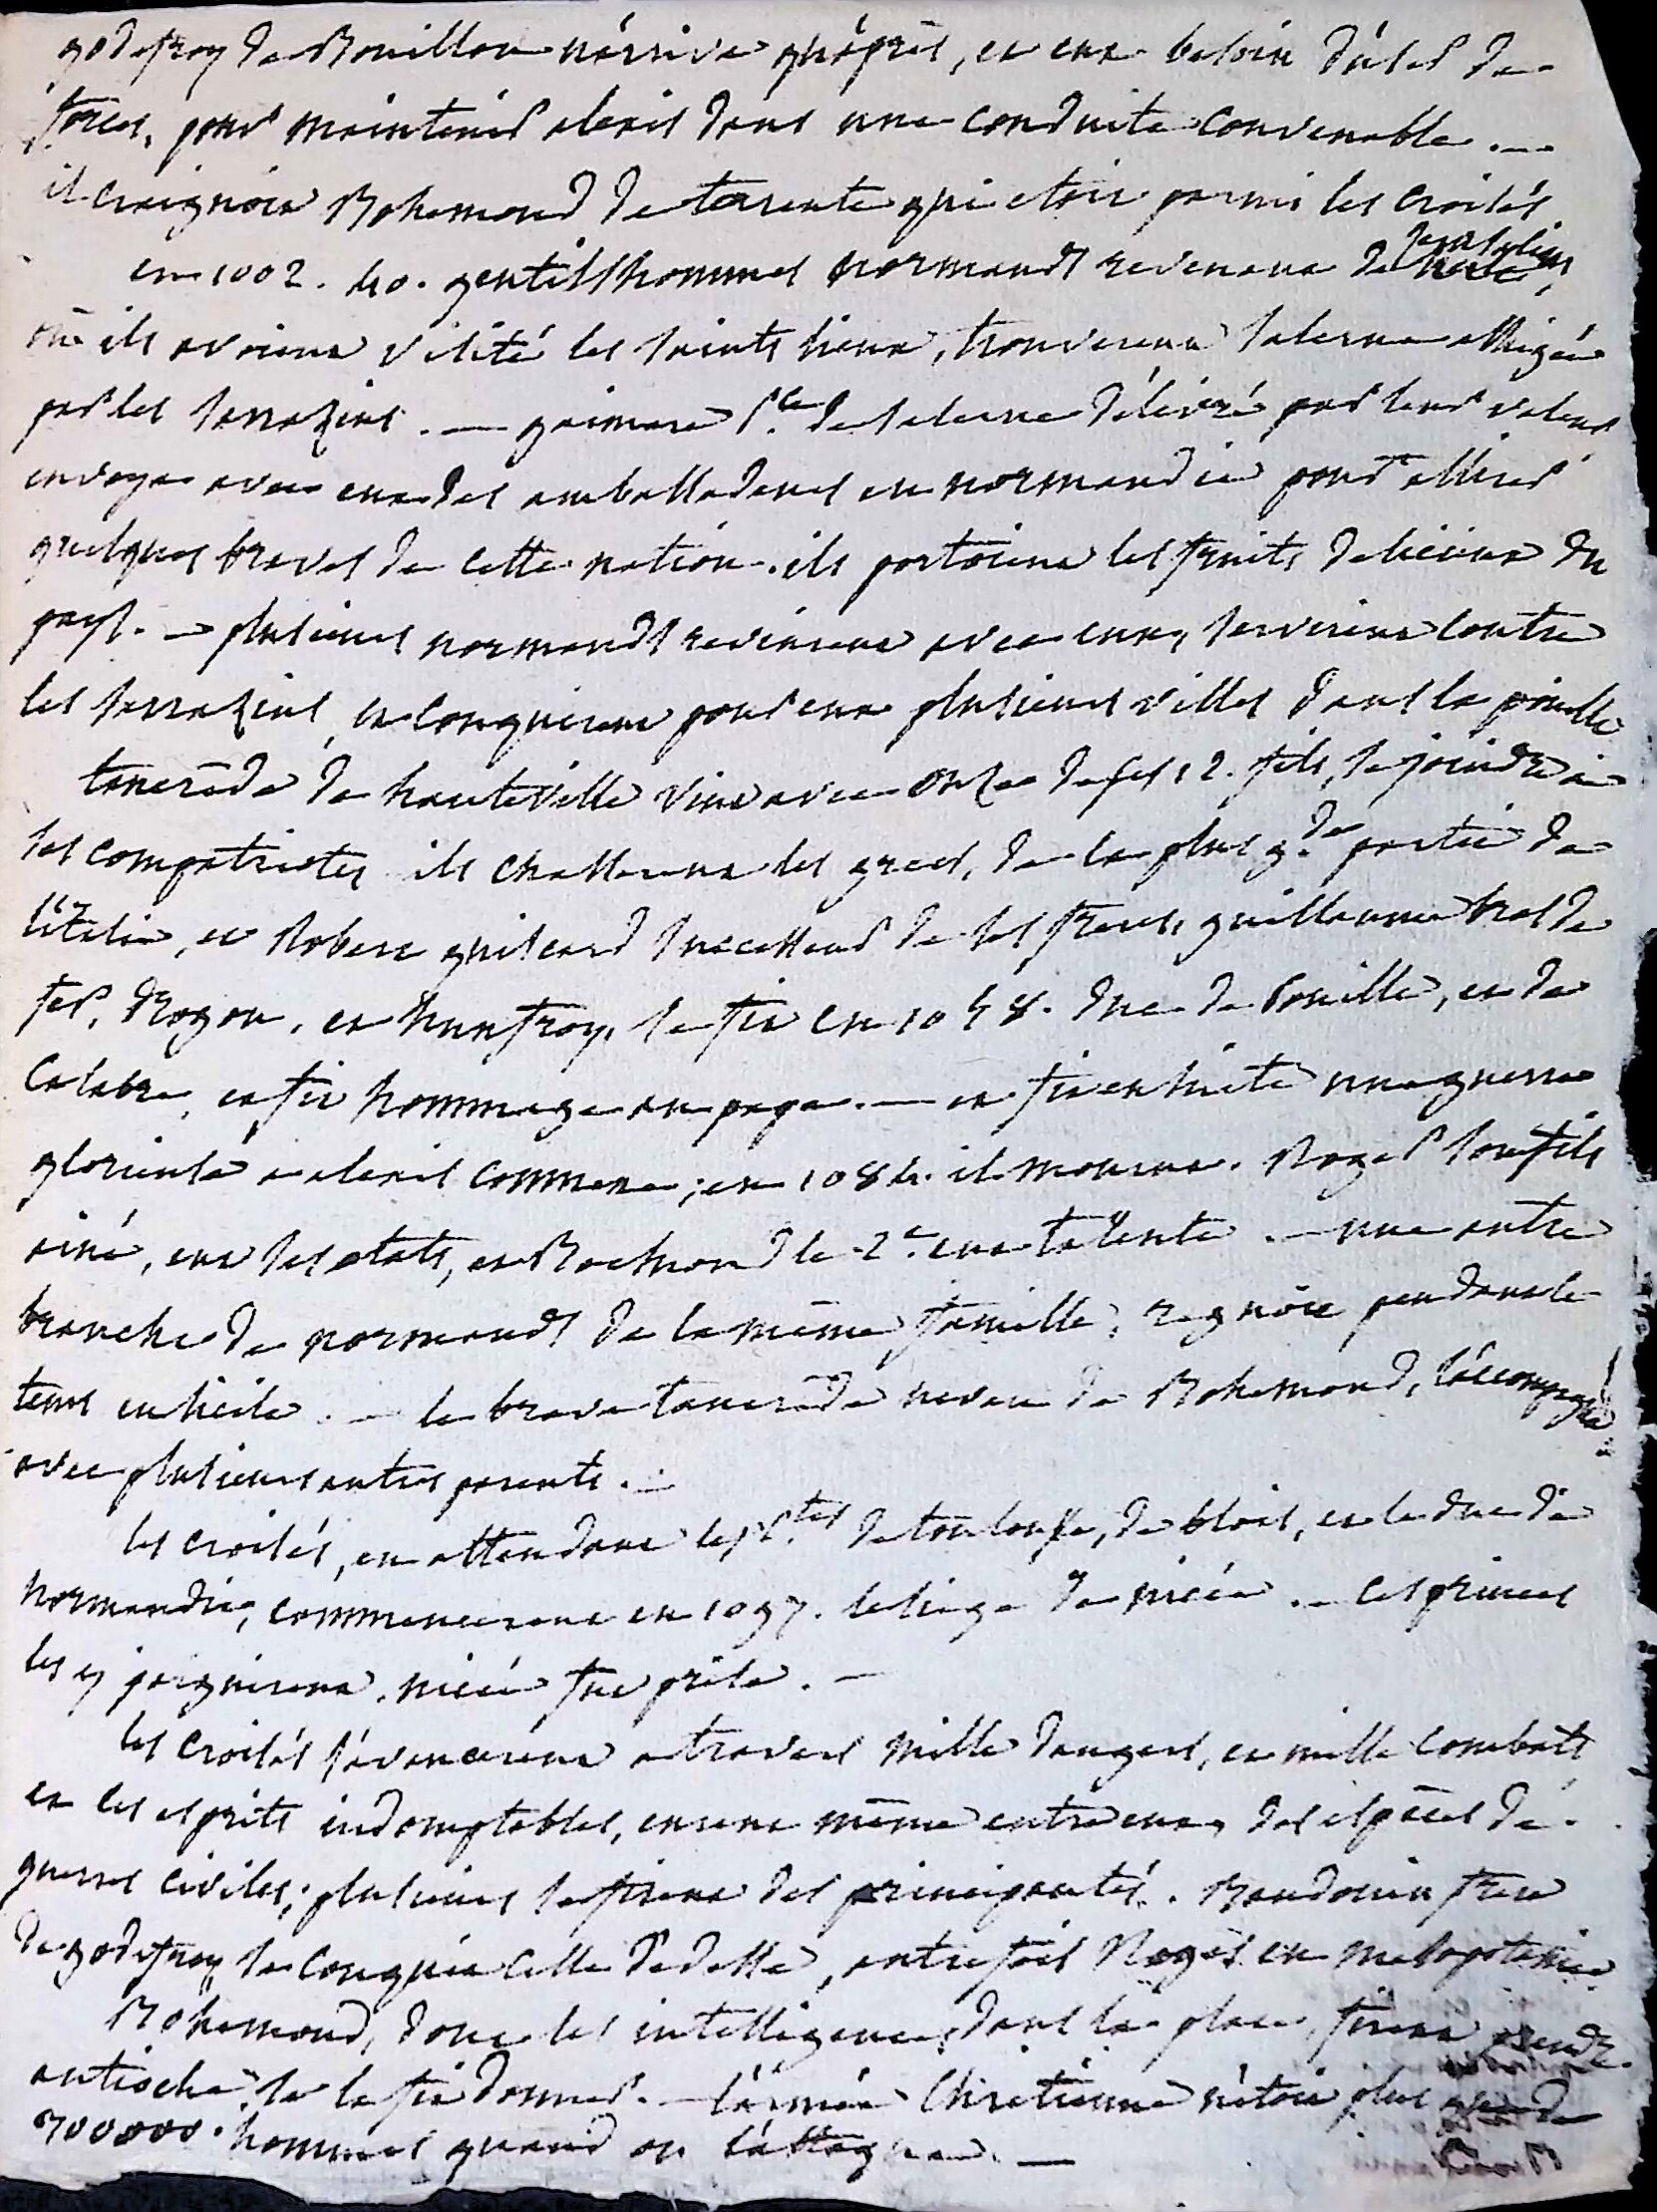 godefroy de Bouillon n'arriva qu'après, et eut besoin d'user de
forces, pour maintenir alexis dans une conduite convenable. —
il craignoit Bohemond de tarente qui etoit parmi les croisés
en 1002. 40. gentilshommes normands revenant de Jerusalem,
où ils avoient visité les saints lieux, trouverent salerne assiégée
par les sarrazins. — gaimare P.ce de salerne délivré par leur valeur
envoya avec eux des ambassadeurs en normandie pour attirer
quelques braves de cette nation. ils portoient les fruits delicieux du
pays. — plusieurs normands revinrent avec eux, servirent contre
les sarrazins, et conquirent pour eux plusieurs villes dans la pouille
tancrède de hauteville vint avec onze de ses 12. fils, se joindre à
ses compatriotes ils chasserent les grecs, de la plus g.de partie de
l'italie, et Robert guiscard successeur de ses freres, guillaume bras de
fer, Drogon, et hunfroy, se fit en 1058. duc de Pouille, et de
Calabre, et fit hommage au pape. — et fit ensuite une guerre
glorieuse a alexis comnene; en 1084. il mourut. Roger son fils
ainé, eut ses etats, et Boemond le 2.e eut tarente. — une autre
branche de normands de la même famille, regnoit pendant ce
tems en sicile. — le brave tancrède neveu de Bohemond, l'accompagna
avec plusieurs autres parents. —
les croisés, en attendant les C.tes de toulouse, de blois, et le duc de
normandie, commencerent en 1097. le siege de nicée. — ces princes
les y joignirent. nicée fut prise. —
les croisés s'avancerent a travers mille dangers, et mille combats
et ces esprits indomptables, eurent même entre eux, des especes de
guerres civiles; plusieurs se firent des principautés. Baudouin frere
de godefroy se conquit celle d'edesse, autrefois Ragès en mesopotamie
Bohemond, dont les intelligences dans la place, firent prendre
antioche, se la fit donner. — l'armée chretienne n'etoit plus que de
300000. hommes quand on l'attaqua. —